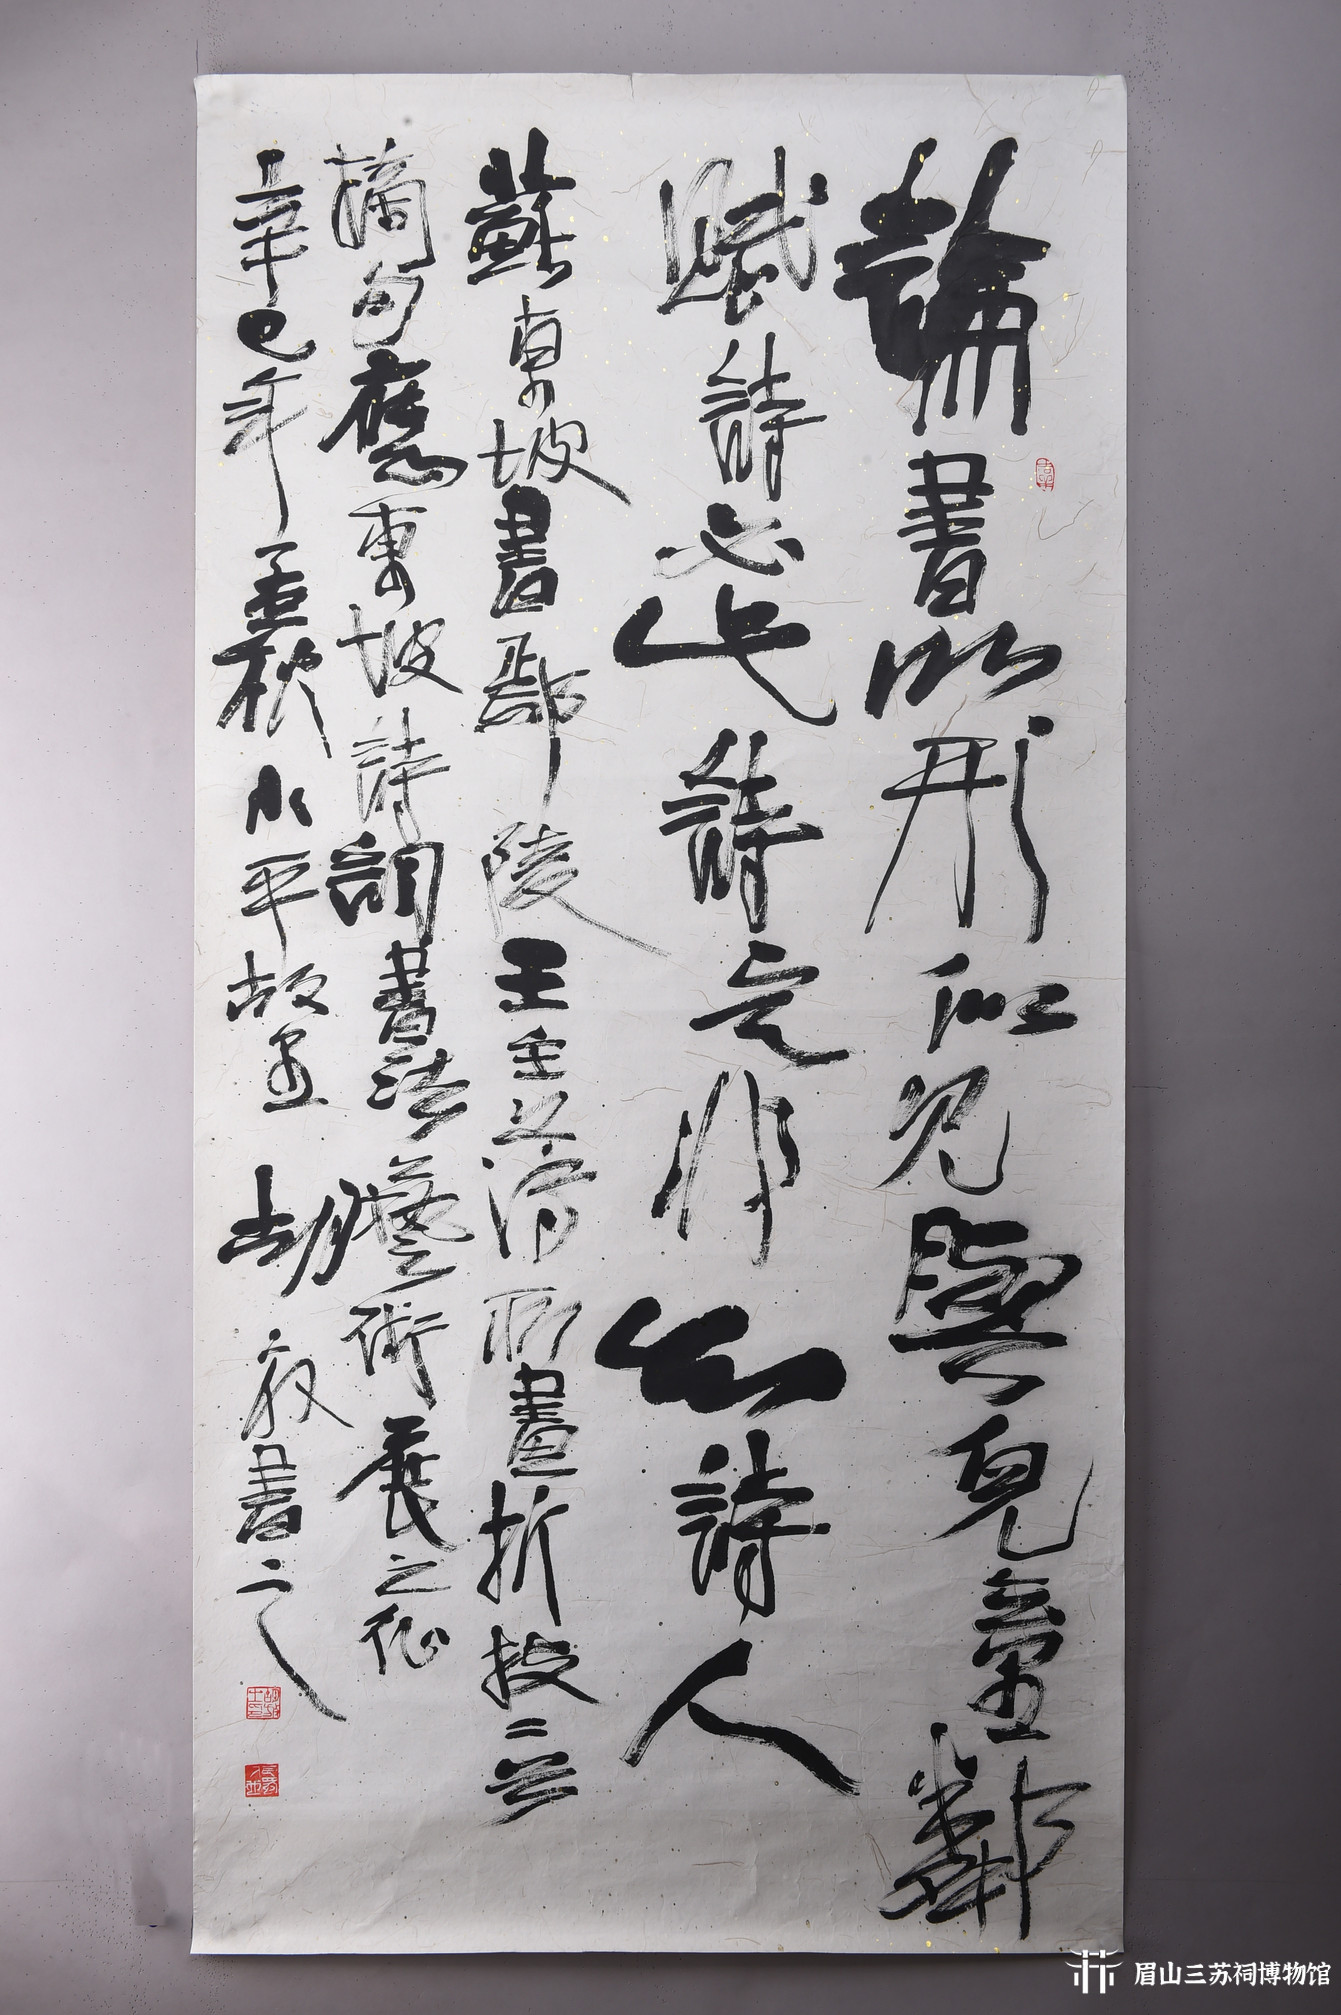 論書以形似見與兒童鄰
賦詩必此詩定非知詩人
蘇東坡書鄢陵王主簿所畫折枝二首
摘句應東坡詩詞書法藝術展之征
辛巳年孟秋小平故里胡書之
眉山三苏祠博物馆